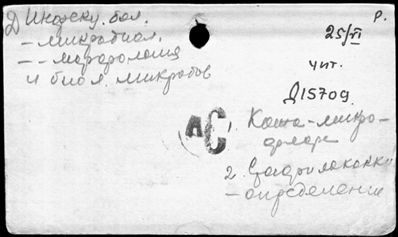 Инфекц. бол.
– микробиол.
– – морфология
и биол. микробов
Р.
25/VI
чит.
Д15709
АС
1. Кокки – микро-
2. Стафилококки
– определение